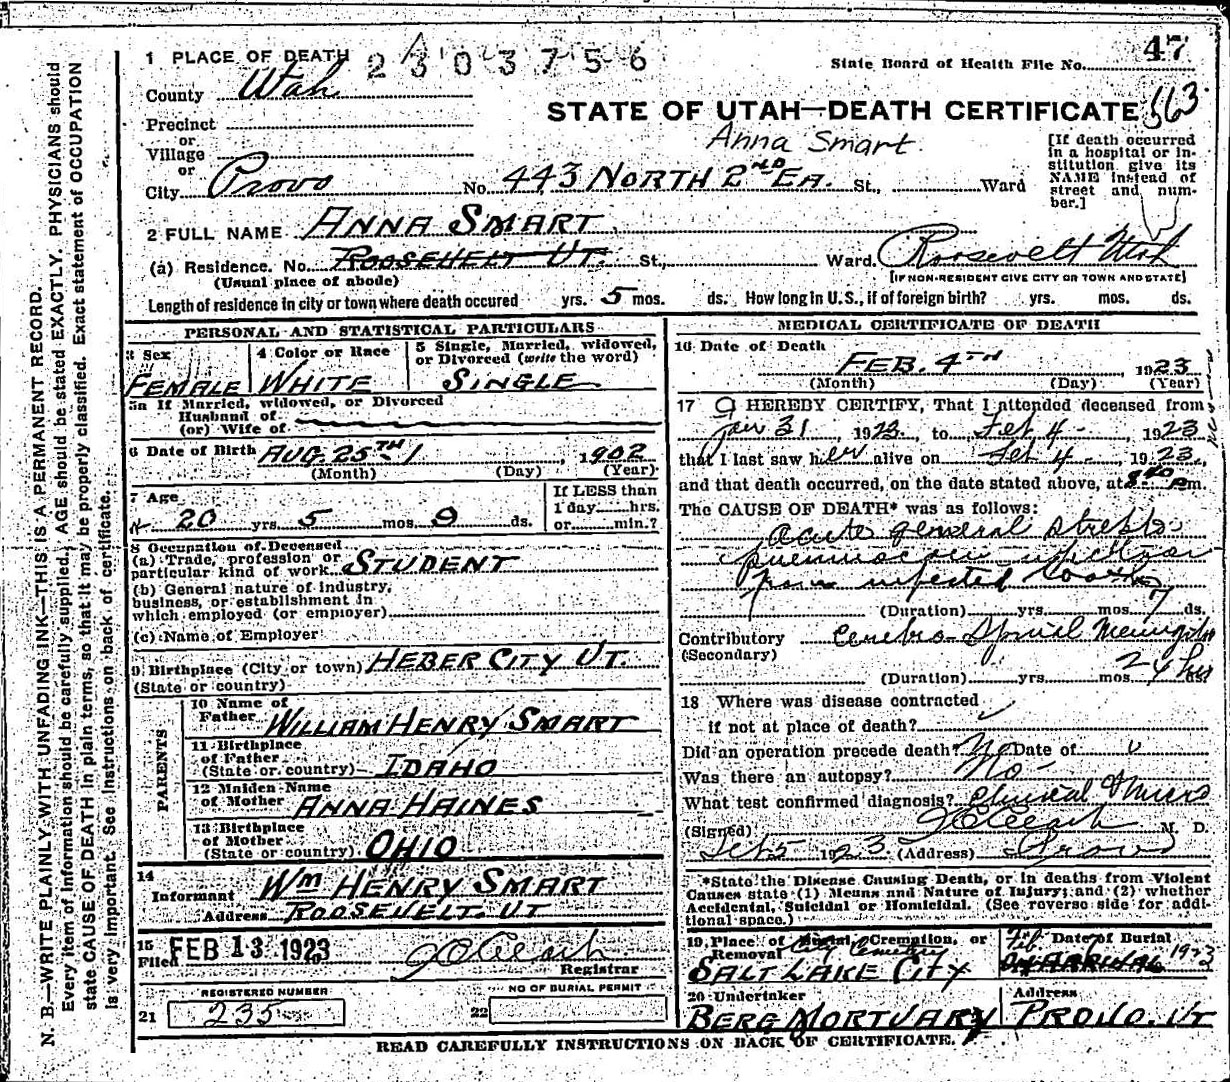 47
1 PLACE OF DEATH 2303756 State Board of Health File No.
County Utah
STATE OF UTAH—DEATH CERTIFICATE 563
Precinct
or
Anna Smart
Village
or
City Provo No. 443 NORTH 2ND EA. St., Ward
[If death occurred
in a hospital or in-
stitution give its
NAME instead of
street and num-
ber.]
2 FULL NAME ANNA SMART
(a) Residence. No. ROOSEVELT UT. St., Ward. Roosevelt Utah
(Usual place of abode) [IF NON-RESIDENT GIVE CITY OR TOWN AND STATE]
Length of residence in city or town where death occured yrs. 5 mos. ds. How long in U.S., if of foreign birth? yrs. mos. ds.
PERSONAL AND STATISTICAL PARTICULARS
3 Sex
FEMALE
4 Color or Race
WHITE
5 Single, Married, widowed,
or Divorced (write the word)
SINGLE
5a If Married, widowed, or Divorced
Husband of
(or) Wife of
6 Date of Birth AUG. 25TH, 1902
(Month) (Day) (Year)
7 Age
20 yrs. 5 mos. 9 ds.
If LESS than
1 day hrs.
or min.?
8 Occupation of Deceased
(a) Trade, profession or
particular kind of work STUDENT
(b) General nature of industry,
business, or establishment in
which employed (or employer)
(c) Name of Employer
9 Birthplace (City or town) HEBER CITY UT.
(State or country)
PARENTS
10 Name of
Father WILLIAM HENRY SMART
11 Birthplace
of Father
(State or country) IDAHO
12 Maiden Name
of Mother ANNA HAINES
13 Birthplace
of Mother
(State or country) OHIO
14
Informant WM HENRY SMART
Address ROOSEVELT. UT
15
Filed FEB 13 1923
Registrar
REGISTERED NUMBER
21 235
NO OF BURIAL PERMIT
22
MEDICAL CERTIFICATE OF DEATH
16 Date of Death
FEB. 4TH, 1923
(Month) (Day) (Year)
17 I HEREBY CERTIFY, That I attended deceased from
Jan 31, 1923, to Feb 4, 1923
that I last saw her alive on Feb 4, 1923,
and that death occurred, on the date stated above, at 8:40 Pm.
The CAUSE OF DEATH* was as follows:
Acute general strepto
pneumococcic infection
from infected tooth
(Duration) yrs. mos. 7 ds.
Contributory Cerebro-Spinal Meningitis
(Secondary)
24 hrs
(Duration) yrs. mos.
18 Where was disease contracted
if not at place of death?
Did an operation precede death? No Date of
Was there an autopsy? No
What test confirmed diagnosis? Clinical &
(Signed) M. D.
Feb 5 1923 (Address) Provo
*State the Disease Causing Death, or in deaths from Violent
Causes state (1) Means and Nature of Injury; and (2) whether
Accidental, Suicidal or Homicidal. (See reverse side for addi-
tional space.)
19 Place of Burial, Cremation, or
Removal City Cemetery
SALT LAKE CITY
Date of Burial
Feb. 7 1923
20 Undertaker
BERG MORTUARY
Address
PROVO. UT
READ CAREFULLY INSTRUCTIONS ON BACK OF CERTIFICATE.
N. B.—WRITE PLAINLY WITH UNFADING INK—THIS IS A PERMANENT RECORD.
Every item of information should be carefully supplied. AGE should be stated EXACTLY. PHYSICIANS should
state CAUSE OF DEATH in plain terms, so that it may be properly classified. Exact statement of OCCUPATION
is very important. See instructions on back of certificate.